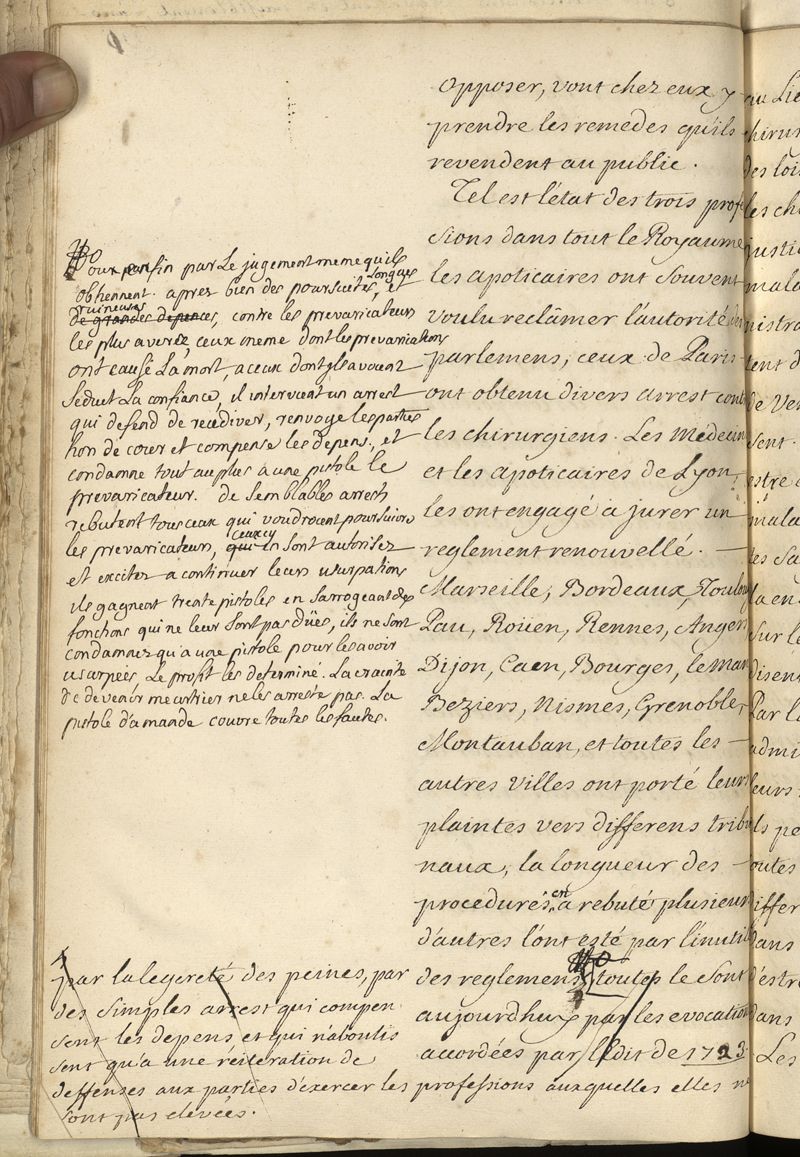 opposer, vont chez eux y
prendre les remedes qu'ils
revendent au public.
Tel est l'état des trois profes
sions dans tout le Royaume
les apoticaires ont souvent
voulu reclâmer l'autorité des
parlemens, ceux de Paris
ont obtenu divers arrest cont
les chirurgiens. Les Médecin
et les apoticaires de Lyon
les ont engagé a jurer un
reglement renouvellé. —
Marseille, Bordeaux, Toulou
Pau, Roüen, Rennes, Angers
Dijon, Caen, Bourges, le Man
Beziers, Nismes, Grenobler,
Montauban, et toutes les —
autres villes ont porté leurs
plaintes vers differens tribu
naux, la longueur des —
procedures en a rebuté plusieur
d'autres l'ont esté par l'inutil
des reglemens, toutes le sont
aujourdhuy par les evocation
accordées par l'Edit de 1723.
oux enfin par Le jugement meme qu'ils
obtiennent. aprez bien des poursuites, longues et
ruineuses
de grandes depences, contre les prevaricateurs
les plus averéz, ceux meme dont les prevarications
ont causé La mort, a ceux dont ils avoient
seduit La confiance, il intervient un arrest
qui defend de recediver, renvoye les parties
hon de cour et compense les depens, et
condamne tout au plus a une pistole le
prevaricateur. de semblables arrests
rebutent tous ceux qui voudroient poursuivre
les prevaricateurs, ceuxcy qui en sont autorisez
et excitez a continuer leurs usurpations
ils gagnent trente pistoles en sarrogeant des
fonctions qui ne leur sont pas dües, ils ne sont
condamnez qu'a une pistole pour les avoir
usarpées, Le profit les determiné. La crainte
de devenir meurtrier ne les arreste pas. La
pistole d'amande couvre toutes les fautes.
par la legereté des peines, par
des simples arrest qui compen
sent les depens, et qui n'aboutis
sent qu'a une reiteration de
deffenses aux parties d'exercer les professions auxquelles elles ne
sont pas elevées.
au Lie
chirur
des loi
les ch
justi
mala
nistra
tent d
de Ve
sent.
estre
mala
es Sa
la en
sur le
disen
Par l
admi
leurs
ls pe
outes
differ
dans
d'estre
dans
Les